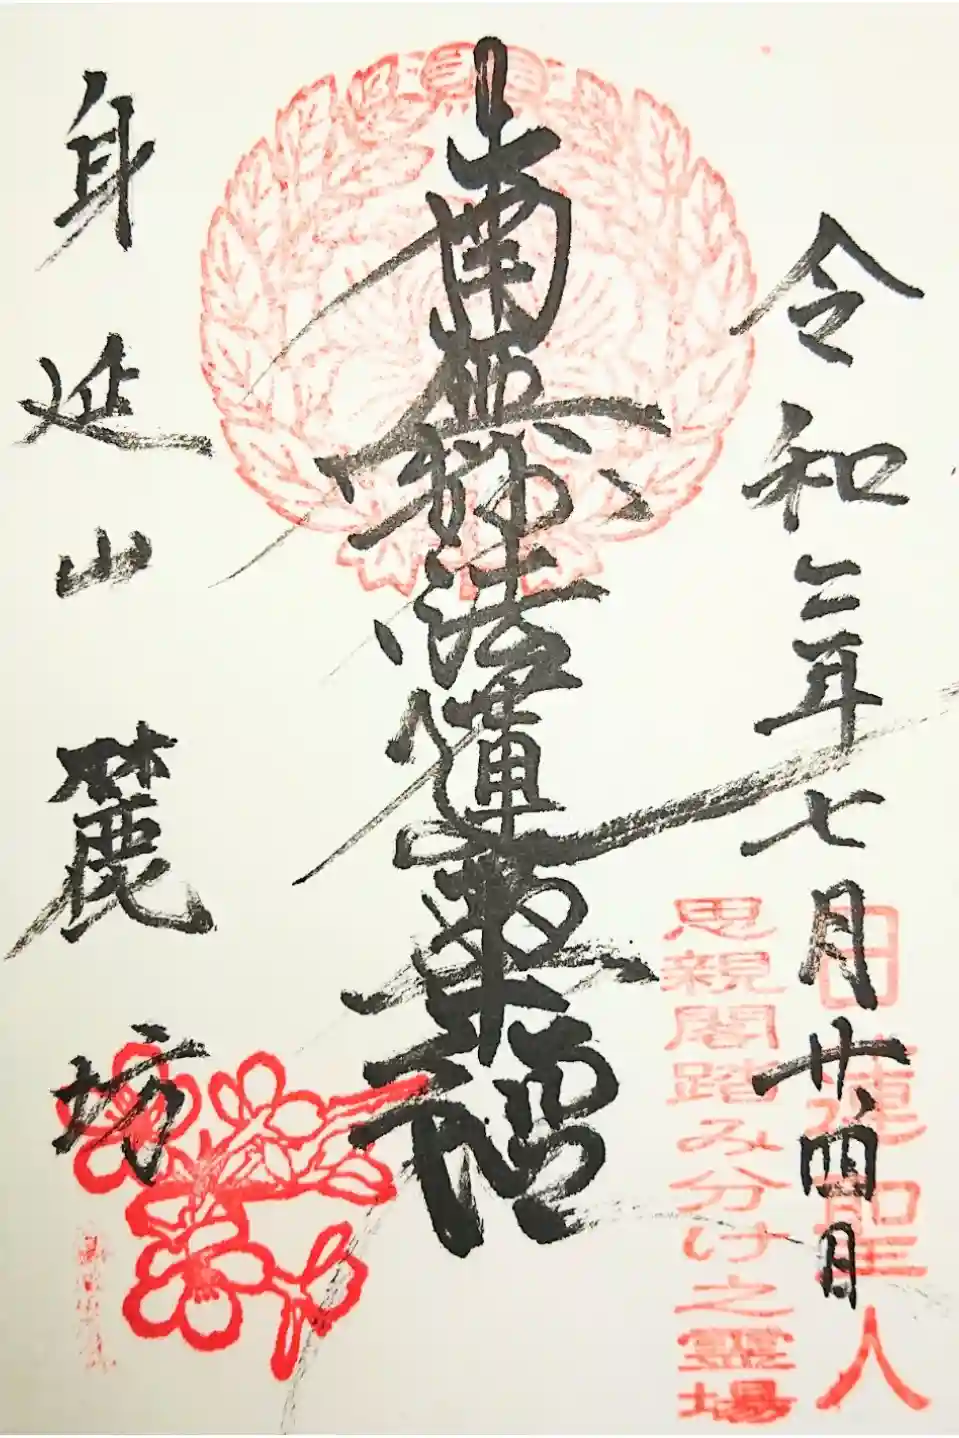 令和二年七月廿四日
日蓮聖人
思親閣踏み分け之霊場
南無妙法蓮華経
身延山 麓坊